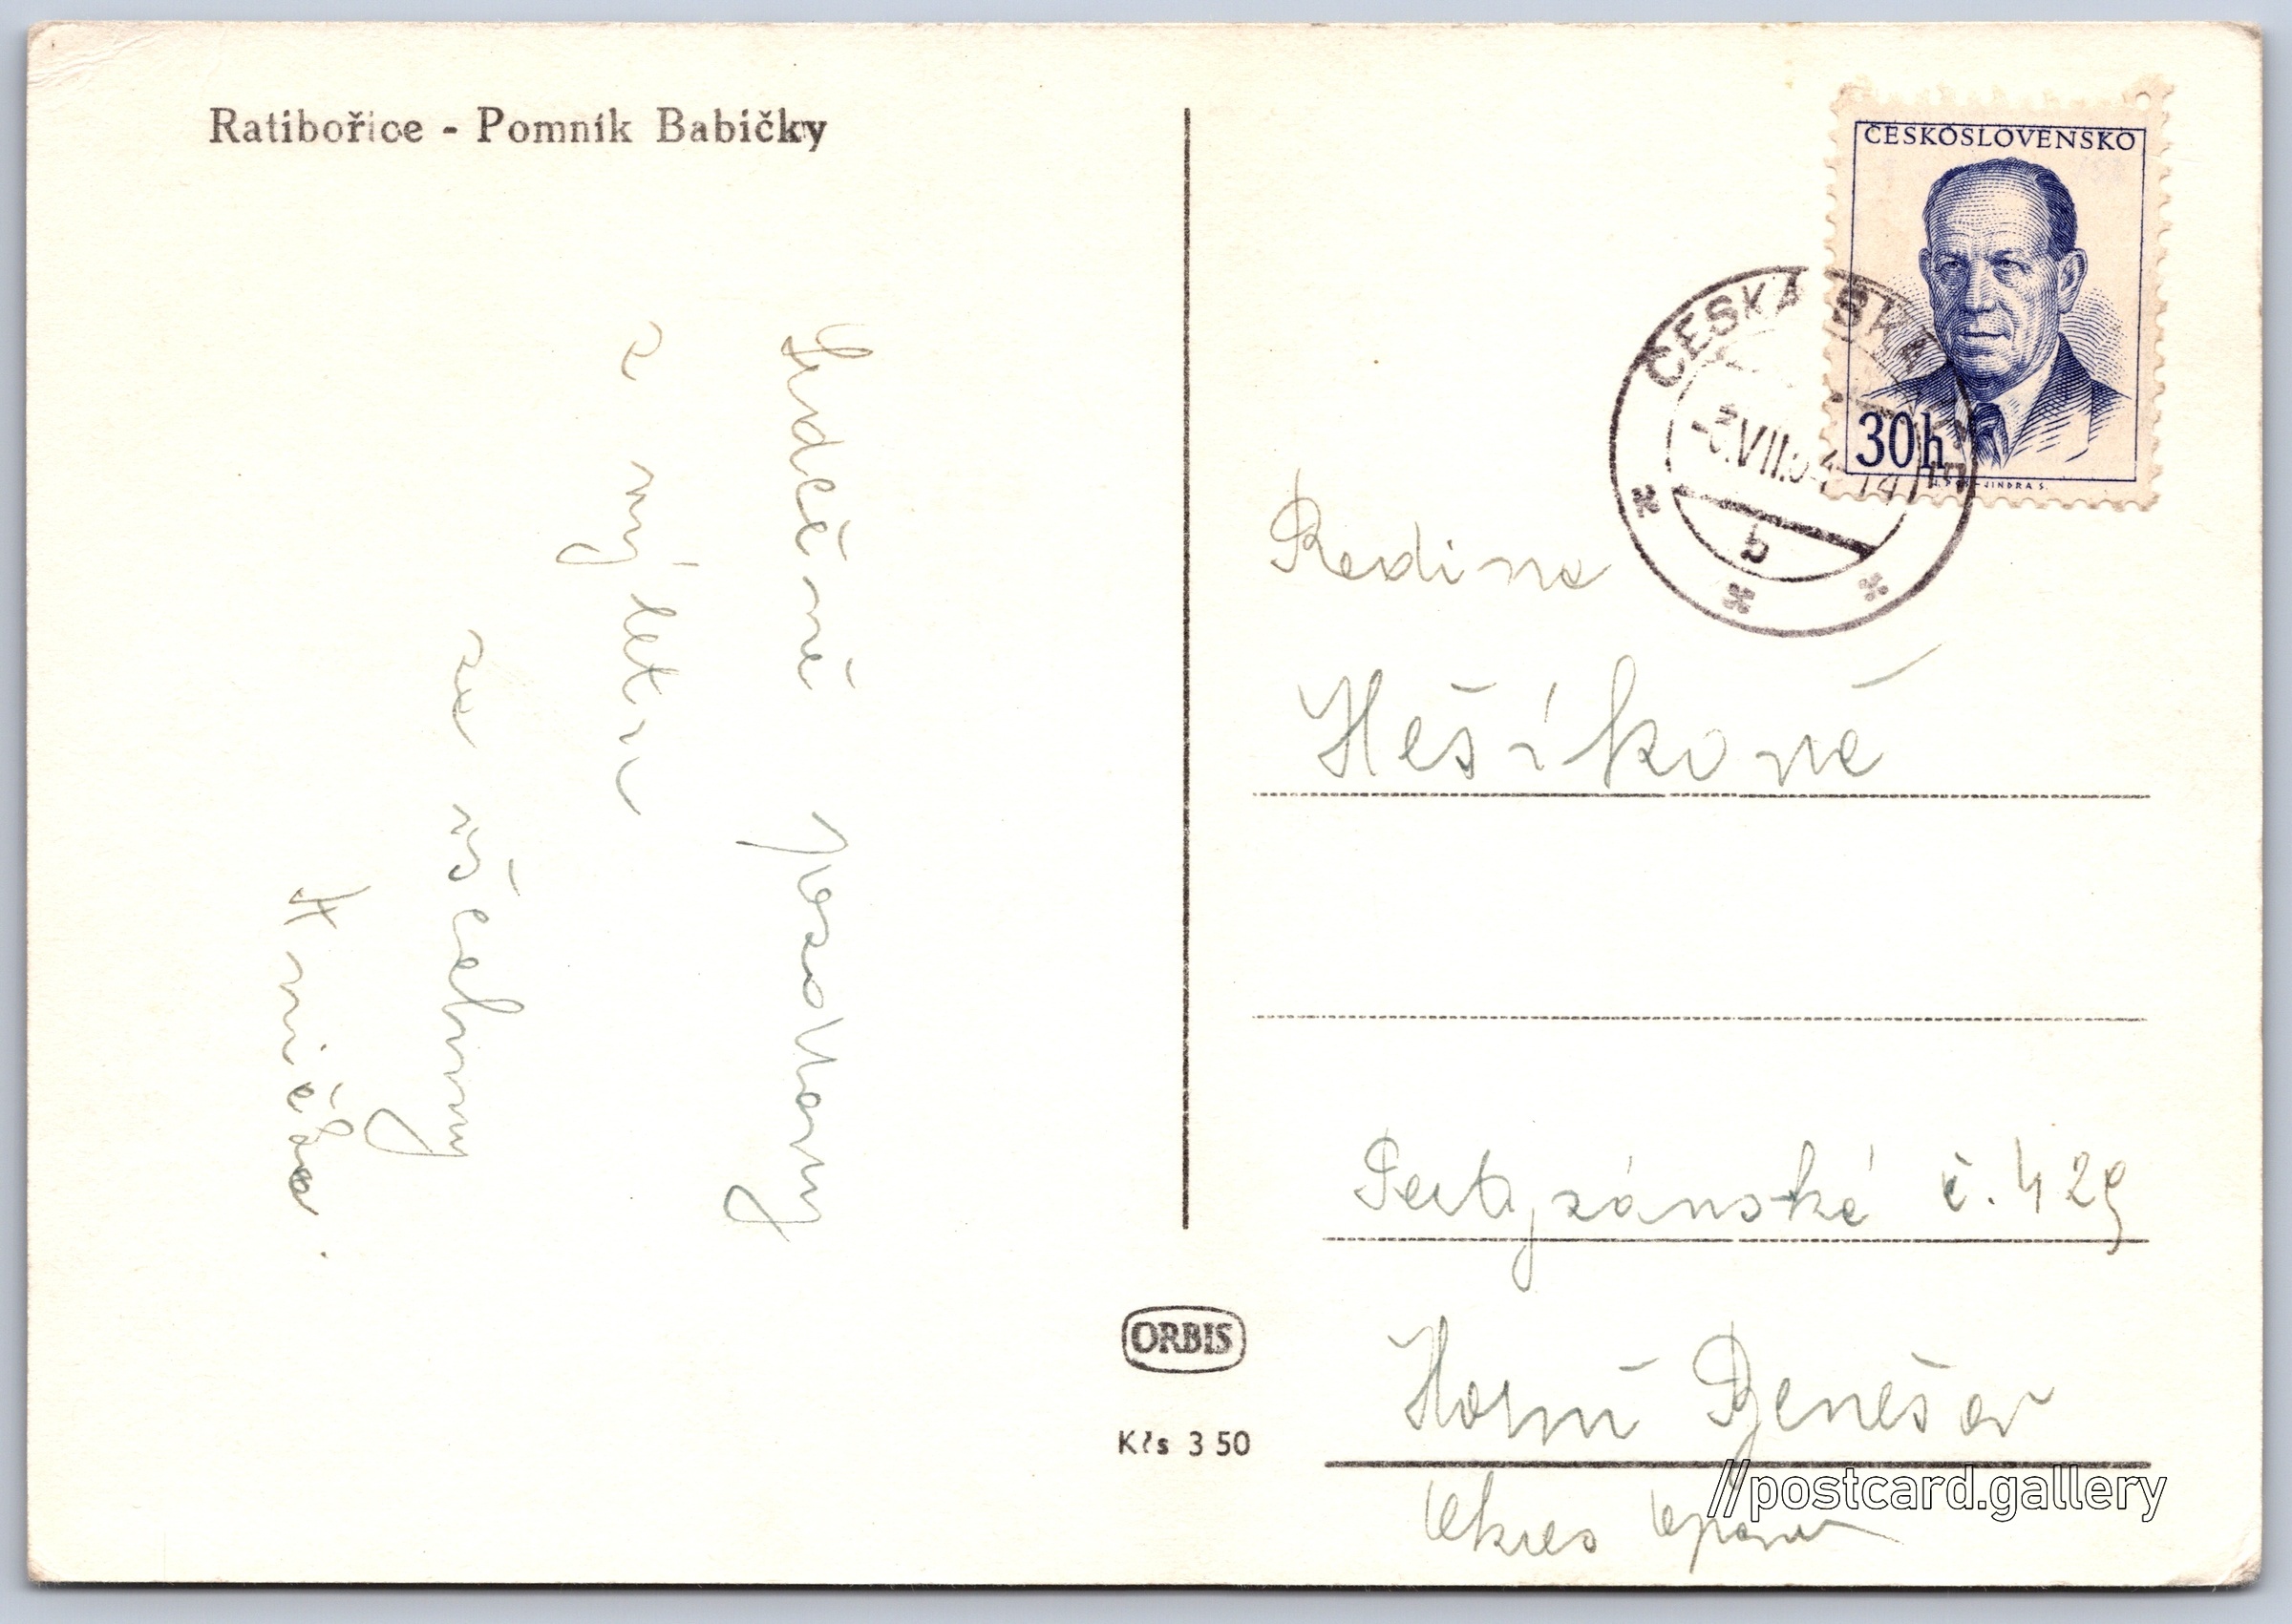 Ratibořice - Pomník Babičky
Srdečné pozdravy
z výletu
ze všechny
Anička.
ČESKOSLOVENSKO
30h
JINDRA S.
ČESKÁ SKALICE
-3.VII.54-14
b
Rodina
Hešíkové
Partyzánská č. 429
Horní Benešov
Okres Opava
ORBIS
Kčs 3 50
//postcard.gallery